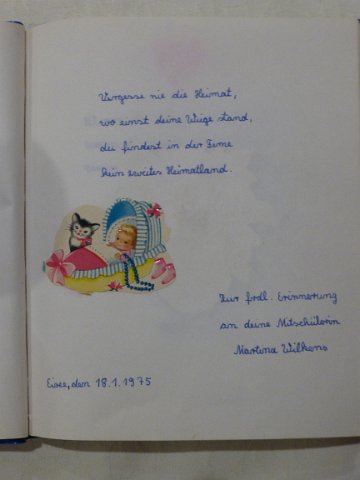 Vergesse nie die Heimat,
wo einst deine Wiege stand,
du findest in der Ferne
kein zweites Heimatland.
Zur frdl. Erinnerung
an deine Mitschülerin
Martina Wilkens
den 18.1.1975